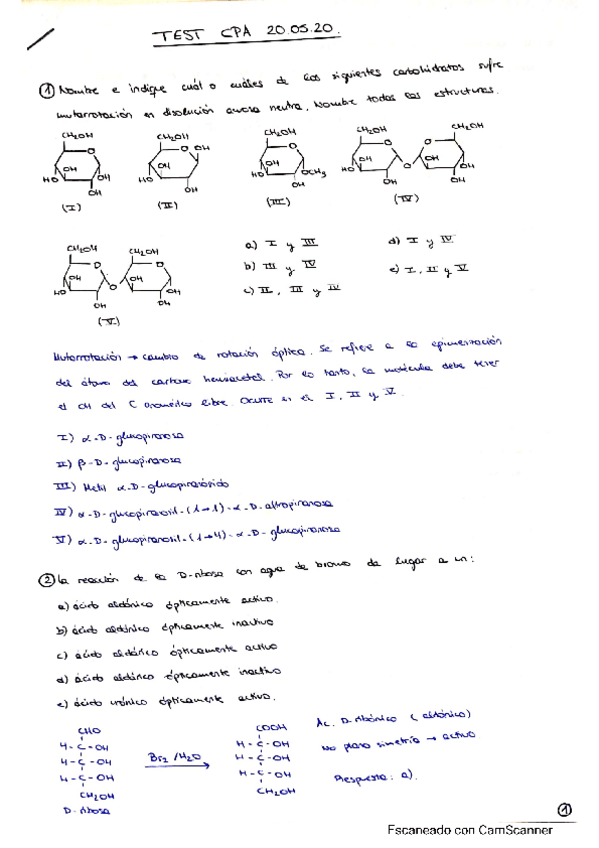 TEST CPA 20.05.20.
① Nombre e indique cuál o cuáles de los siguientes carbohidratos sufre
mutarrotación en disolución acuosa neutra. Nombre todas las estructuras.
CH2OH CH2OH CH2OH CH2OH CH2OH
O O O O O
OH OH OH OH OH
HO OH HO OH HO OCH3 HO O OH
OH OH OH OH OH
(I) (II) (III) (IV)
CH2OH CH2OH
O O
OH OH
HO O OH
OH OH
(V)
a) I y III
b) III y IV
c) II, III y IV
d) I y IV
e) I, II y V
Mutarrotación → cambio de rotación óptica. Se refiere a la epimerización
del átomo del carbono hemiacetal. Por lo tanto, la molécula debe tener
el OH del C anomérico libre. Ocurre en el I, II y V.
I) α-D-glucopiranosa
II) β-D-glucopiranosa
III) Metil α-D-glucopiranósido
IV) α-D-glucopiranosil-(1→1)-α-D-altropiranosa
V) α-D-glucopiranosil-(1→4)-α-D-glucopiranosa
② La reacción de la D-ribosa con agua de bromo da lugar a un:
a) ácido aldónico ópticamente activo.
b) ácido aldónico ópticamente inactivo
c) ácido aldárico ópticamente activo
d) ácido aldárico ópticamente inactivo
e) ácido urónico ópticamente activo.
CHO
H-C-OH
H-C-OH
H-C-OH
CH2OH
D-ribosa
Br2/H2O
COOH
H-C-OH
H-C-OH
H-C-OH
CH2OH
Ac. D-Ribónico (aldónico)
No plano simetría → activo
Respuesta: a).
①
Escaneado con CamScanner